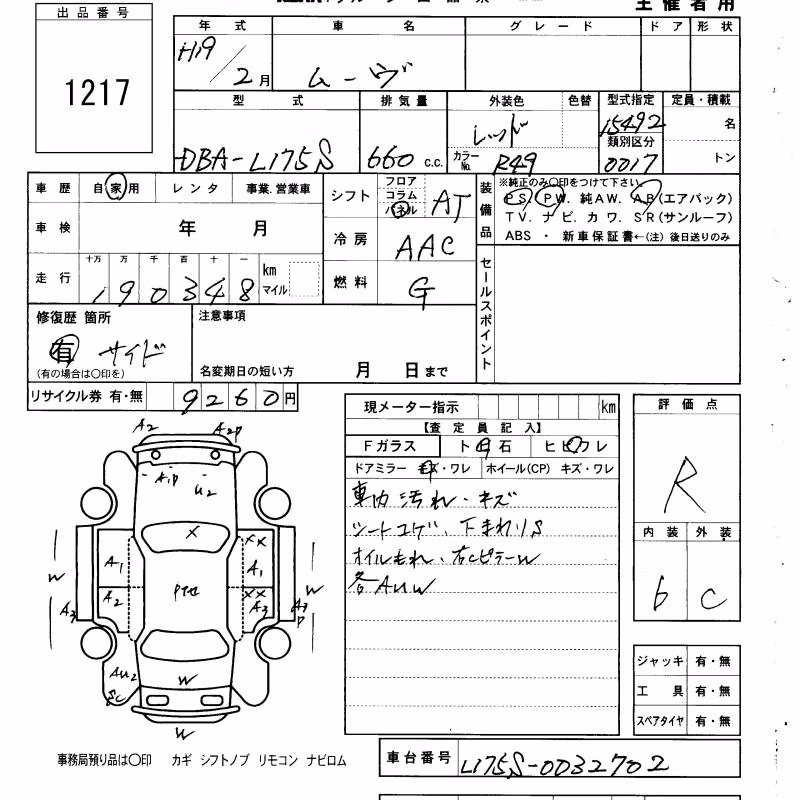 主催者用
出品番号
1217
年式 車名 グレード ドア 形状
H19/2月 ムーヴ
型式 排気量 外装色 色替 型式指定 定員・積載
DBA-L175S 660 c.c. レッド 15492 名
カラーNo. R49 類別区分 0017 トン
車歴 自家用 レンタ 事業.営業車
車検 年 月
走行 十万 万 千 百 十 一 km マイル
190348
シフト フロア コラム パネル AT
冷房 AAC
燃料 G
装備品 ※純正のみ○印をつけて下さい。
PS. PW. 純AW. AB(エアバック)
TV. ナビ. カワ. SR(サンルーフ)
ABS ・ 新車保証書←(注) 後日送りのみ
セールスポイント
修復歴 箇所
有 サイド
(有の場合は○印を)
注意事項
名変期日の短い方 月 日まで
リサイクル券 有・無 9260円
現メーター指示 km
【査定員記入】
Fガラス ト石 ヒビワレ
ドアミラー キズ・ワレ ホイール(CP) キズ・ワレ
車内汚れ・キズ
シートコゲ、下まわりS
オイルもれ・右CピラーW
各AUW
評価点
R
内装 外装
6 C
ジャッキ 有・無
工具 有・無
スペアタイヤ 有・無
A2 A2P
A1P U2
X XX
A1 A1
W W
A2 XX A3
A3 A3P
AU2
SC
W
W
事務局預り品は○印 カギ シフトノブ リモコン ナビロム
車台番号 L175S-0032702